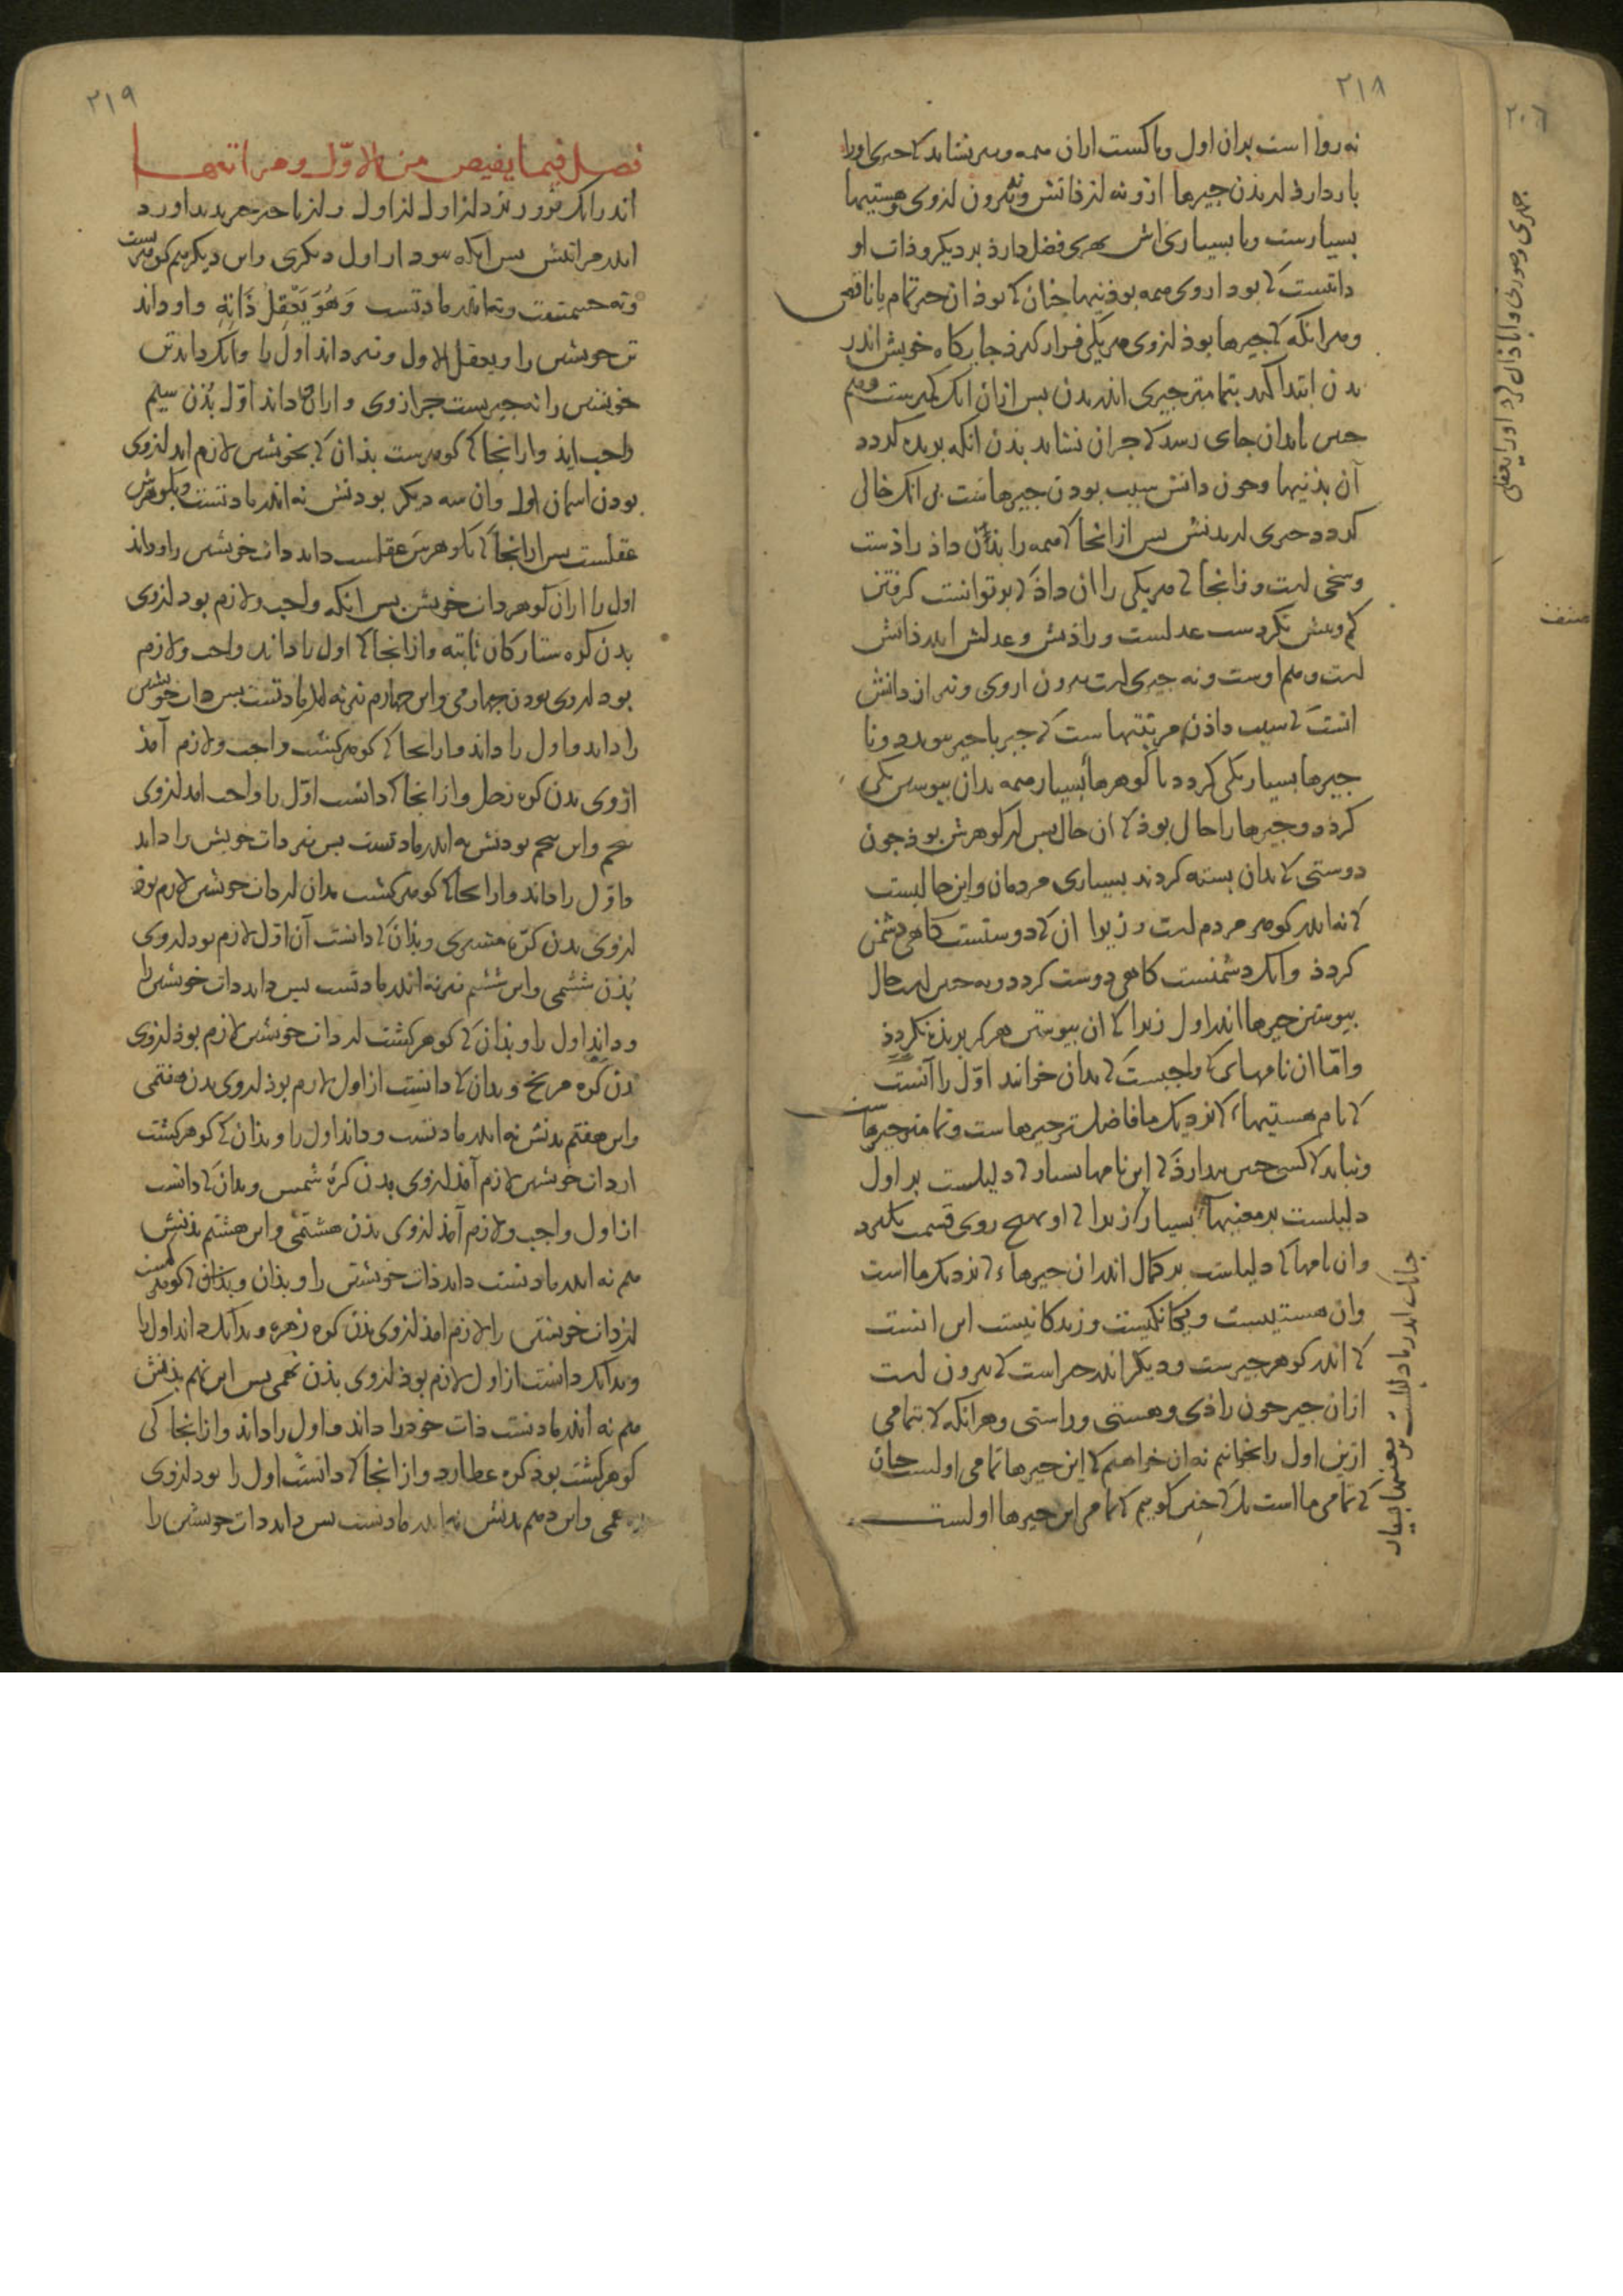 ۲۱۸
نه روا است بدان اول و باکست ازان همه و نیز نشاید کا چیزی اورا
باز دارذ اندر بذن چیزها ازو نه از ذاتش و نه بیرون از وی و هستیها
بسیارست و با بسیاری اش بهری فضل دارذ بر دیگر و ذات او
دانست کا بود از وی همه بوذنیها چنان کا بوذ ان چیز تمام یا ناقص
و هرانگه کا چیزها بوذ از وی هر یکی فرار کیرذ جایگاه خویش اندر
بدن ابتدا کند بتمامتر چیزی اندر بدن بس ازان انک کمترست و هم
جنین تا بدان جای رسد کا جزان نشاید بذن انگه بریده گردد
آن بذنیها و جون دانش سبب بودن چیزهاست بی انک خالی
گردد چیزی از بدنش بس از انجا کا همه را بذن داذ راذست
و سخی است و زانجا کا هر یکی را ان داذ کا بر توانست گرفتن
کم و بیش نکردست عدلست و راذیش و عدلش اندر ذاتش
است و هم اوست و نه چیزی است بیرون از وی و نیز از دانش
انست کا سبب داذن مرتبتهاست کا چیز با چیز بیوندد و تا
چیزها بسیار یکی گردد تا گوهرها بسیار همه بدان بیوستن یکی
گردد و چیزها را حال بوذ کا ان حال بس از گوهرش بوذ جون
دوستی کا بدان بسته گردند بسیاری مردمان و این حالیست
کا نه اندر گوهر مردم است و زیرا ان کا دوستست گاهی دشمن
گردذ و انک دشمنست گاهی دوست گردد و نه جنین است حال
بیوستن چیزها اندر اول زیرا کا ان بیوستن هرگز بریذه نگردذ
و امّا ان نامهای کا واجبست کا بدان خوانند اوّل را آنست
کا نام هستیهاء کا نزدیک ما فاضلترین چیزهاست و تمامتر چیزها
و نباید کا کسی جنین بندارذ کا این نامها بسیار کا دلیلست بر اول
دلیلست بر معنیهاء بسیار زیرا کا او بهیچ روی قسمت نکیرد
و ان نامها کا دلیلست بر کمال اندر ان چیزهاء کا نزدیک ما است
و ان هستیست و یگانگیست و زندگانیست این انست
کا اندر گوهر چیزست و دیگر اندر چیز است کا بیرون است
ازان چیز جون راذی و هستی و راستی و هرانگه کا بتمامی
ازین اول را بخوانیم نه ان خواهیم کا این چیزها تمامی اولست جنان
کا تمامی ما است بل کا جنین گوییم کا تمامی این چیزها اولست
۲۱۹
فصل فیما یفیض من الاوّل و مراتبها
اندر انک بزور نزد از اول از اول و از با جیز جیز بدید آورد
اندر مراتبش بس ایکه بود از اول دیگری و این دیگر هم گوهرست
و نه جسمست و نه اندر مادتست وَهُوَ یَعْقِلُ ذَاتَهُ و او داند
تن خویش را و یعقل الاول و نیز داند اوّل را و انک داند تن
خویشتن را نه چیزیست جز از وی و ازان کا داند اوّل بُذن سیم
واجب ایذ و از انجا کا گوهرست بذان کا بخویش لازم اید از وی
بودن اسمان اول و ان سه دیگر بودنش نه اندر مادتست و گوهرش
عقلست بس از انجا کا گوهرش عقلست داند ذات خویش را و داند
اول را ازان گوهر ذات خویش بس انگه واجب و لازم بود از وی
بدن کره ستارگان ثابته و از انجا کا اول را داند واجب و لازم
بود از وی بودن جهارمی و این جهارم نیز نه اندر مادتست بس ذات خویش
را داند و اول را داند و از انجا کا گوهر کشت واجب و لازم آمذ
ازوی بدن کره زحل و از انجا کا دانست اوّل را واجب امد از وی
بنجم و این بنجم بودنش نه اندر مادتست بس نیز ذات خویش را داند
و اوّل را داند و از انجا کا گوهر کشت بدان از ذات خویش لازم بوذ
از وی بدن کرّه مشتری و بذان کا دانست آن اوّل لازم بود از وی
بُذن ششمی و این ششم نیز نه اندر مادتست بس داند ذات خویش را
و داند اول را و بذان کا گوهر کشت از ذات خویش لازم بوذ از وی
بدن کره مریخ و بدان کا دانست از اول لازم بوذ از وی بدن هفتمی
و این هفتم بدنش نه اندر مادتست و داند اول را و بذان کا گوهر کشت
از ذات خویش لازم آمذ از وی بدن کرهٔ شمس و بدان کا دانست
از اول واجب و لازم آمذ از وی بذن هشتمی و این هشتم بذنش
هم نه اندر مادتست داند ذات خویشتن را و بذان کا گوهر کشت
از ذات خویشتن را لازم امذ از وی بذن کره زهره و بدانک داند اول را
و بدانک دانست از اول لازم بوذ از وی بذن نهمی بس این نهم بذنش
هم نه اندر مادتست ذات خود را داند و اول را داند و از انجا کی
گوهر کشت بوذ کره عطارد و از انجا کا دانست اول را بود از وی
دهمی و این دهم بدنش نه اندر مادتست بس داند ذات خویشتن را